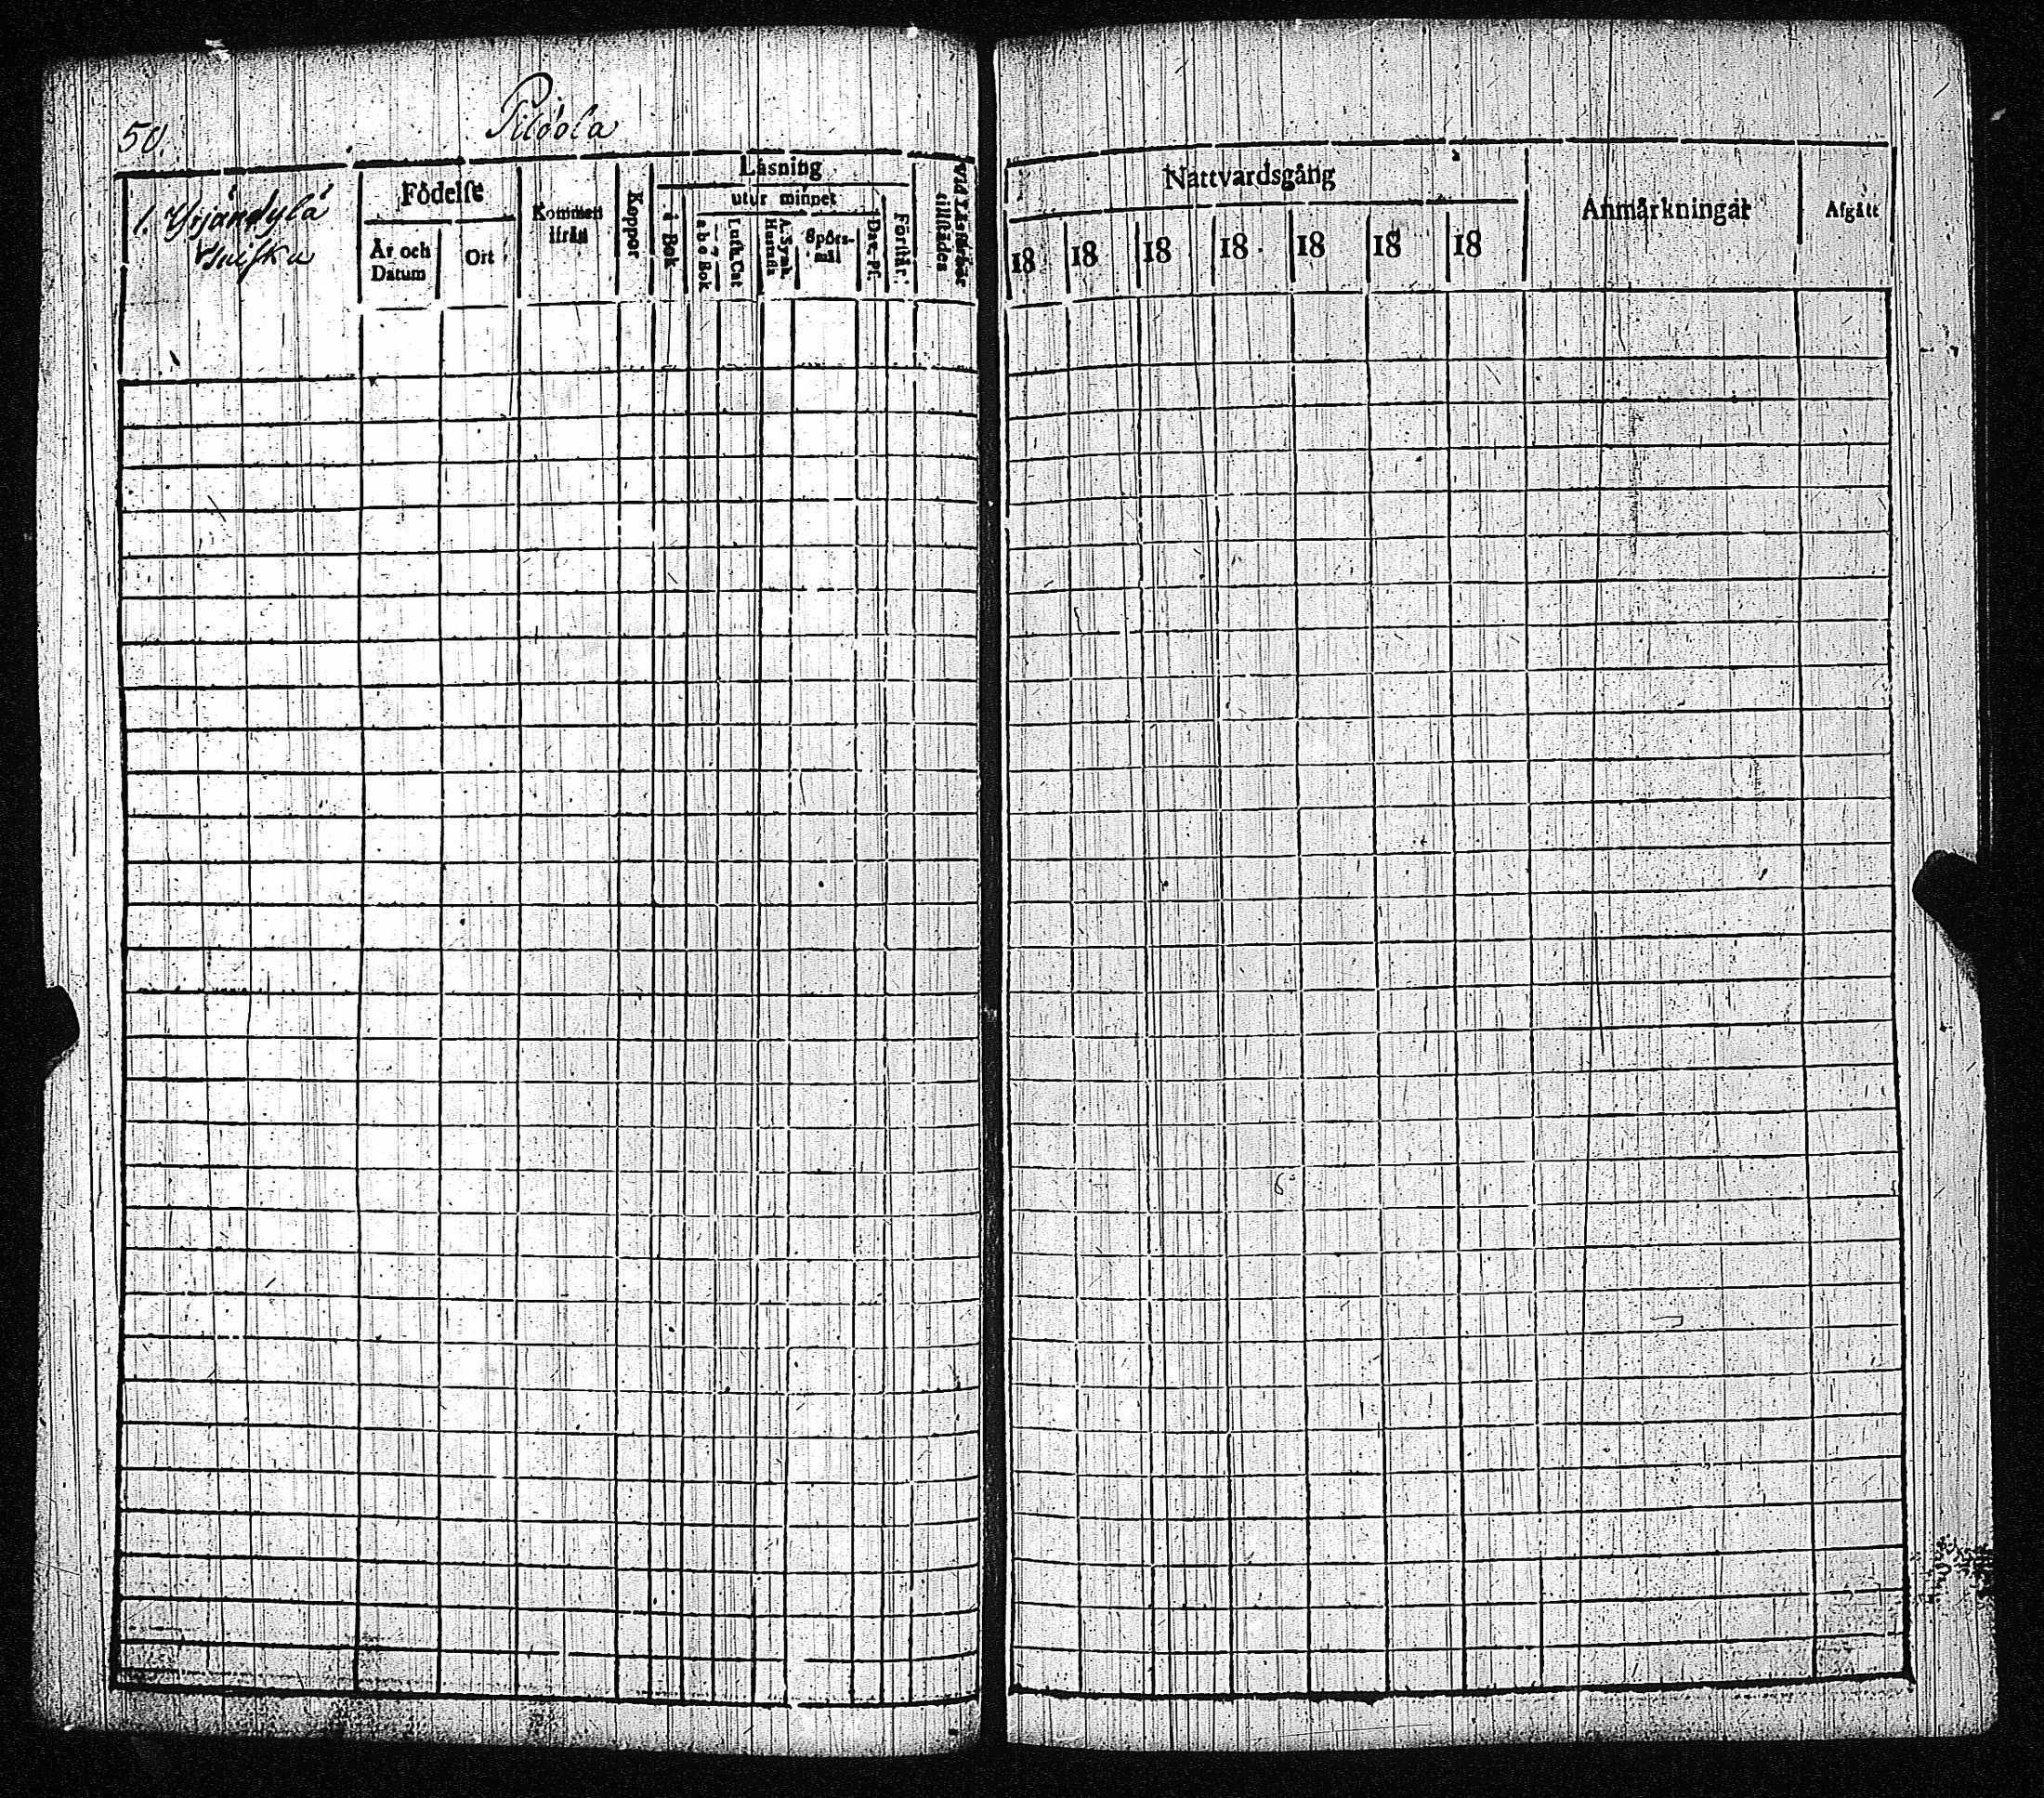 50.
1. Yrjändylä
Födelse
År och
Datum
Ort
Kommen
ifrån
Koppor
Läsning
i Bok
utur minnet
a b c Bok
Luth. Cat
A. Symb.
Hustafla
Spörs-
mål
Dav. Ps.
Förstår
Vid Läsförhör
tillstädes
Nattvardsgång
18 18 18 18 18 18 18
Anmärkningar
Afgått